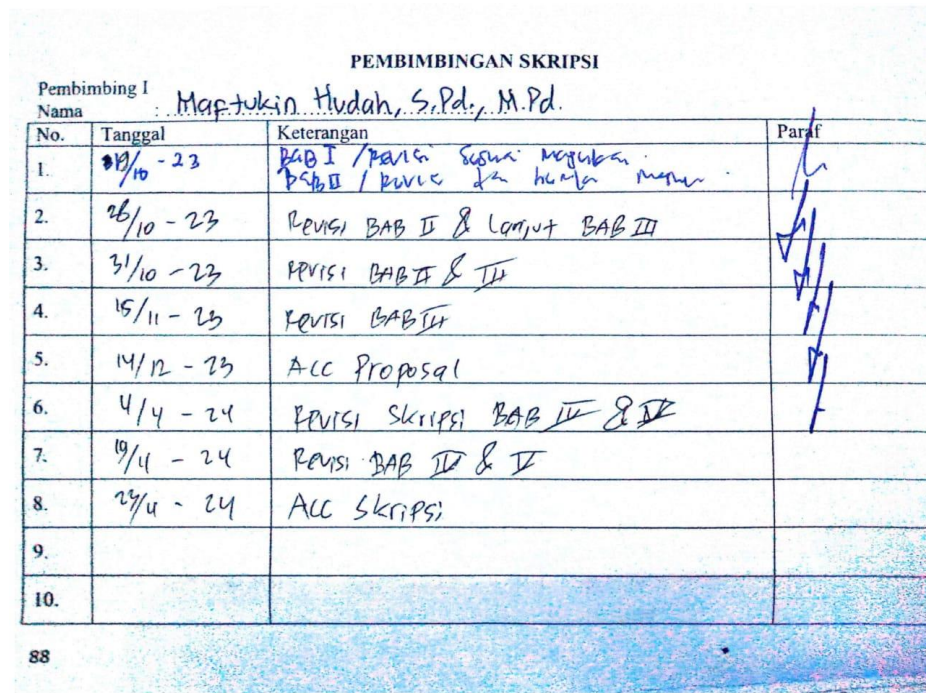 PEMBIMBINGAN SKRIPSI
Pembimbing I
Nama : Maftukin Hudah, S.Pd., M.Pd.
No. Tanggal Keterangan Paraf
1. 19/10 - 23 BAB I / Revisi Sesuai
BAB II / Revisi
2. 26/10 - 23 Revisi BAB II & Lanjut BAB III
3. 31/10 - 23 Revisi BAB II & III
4. 15/11 - 23 Revisi BAB III
5. 14/12 - 23 Acc Proposal
6. 4/4 - 24 Revisi Skripsi BAB IV &
7. 19/4 - 24 Revisi BAB IV & V
8. /4 - 24 Acc Skripsi
9.
10.
88